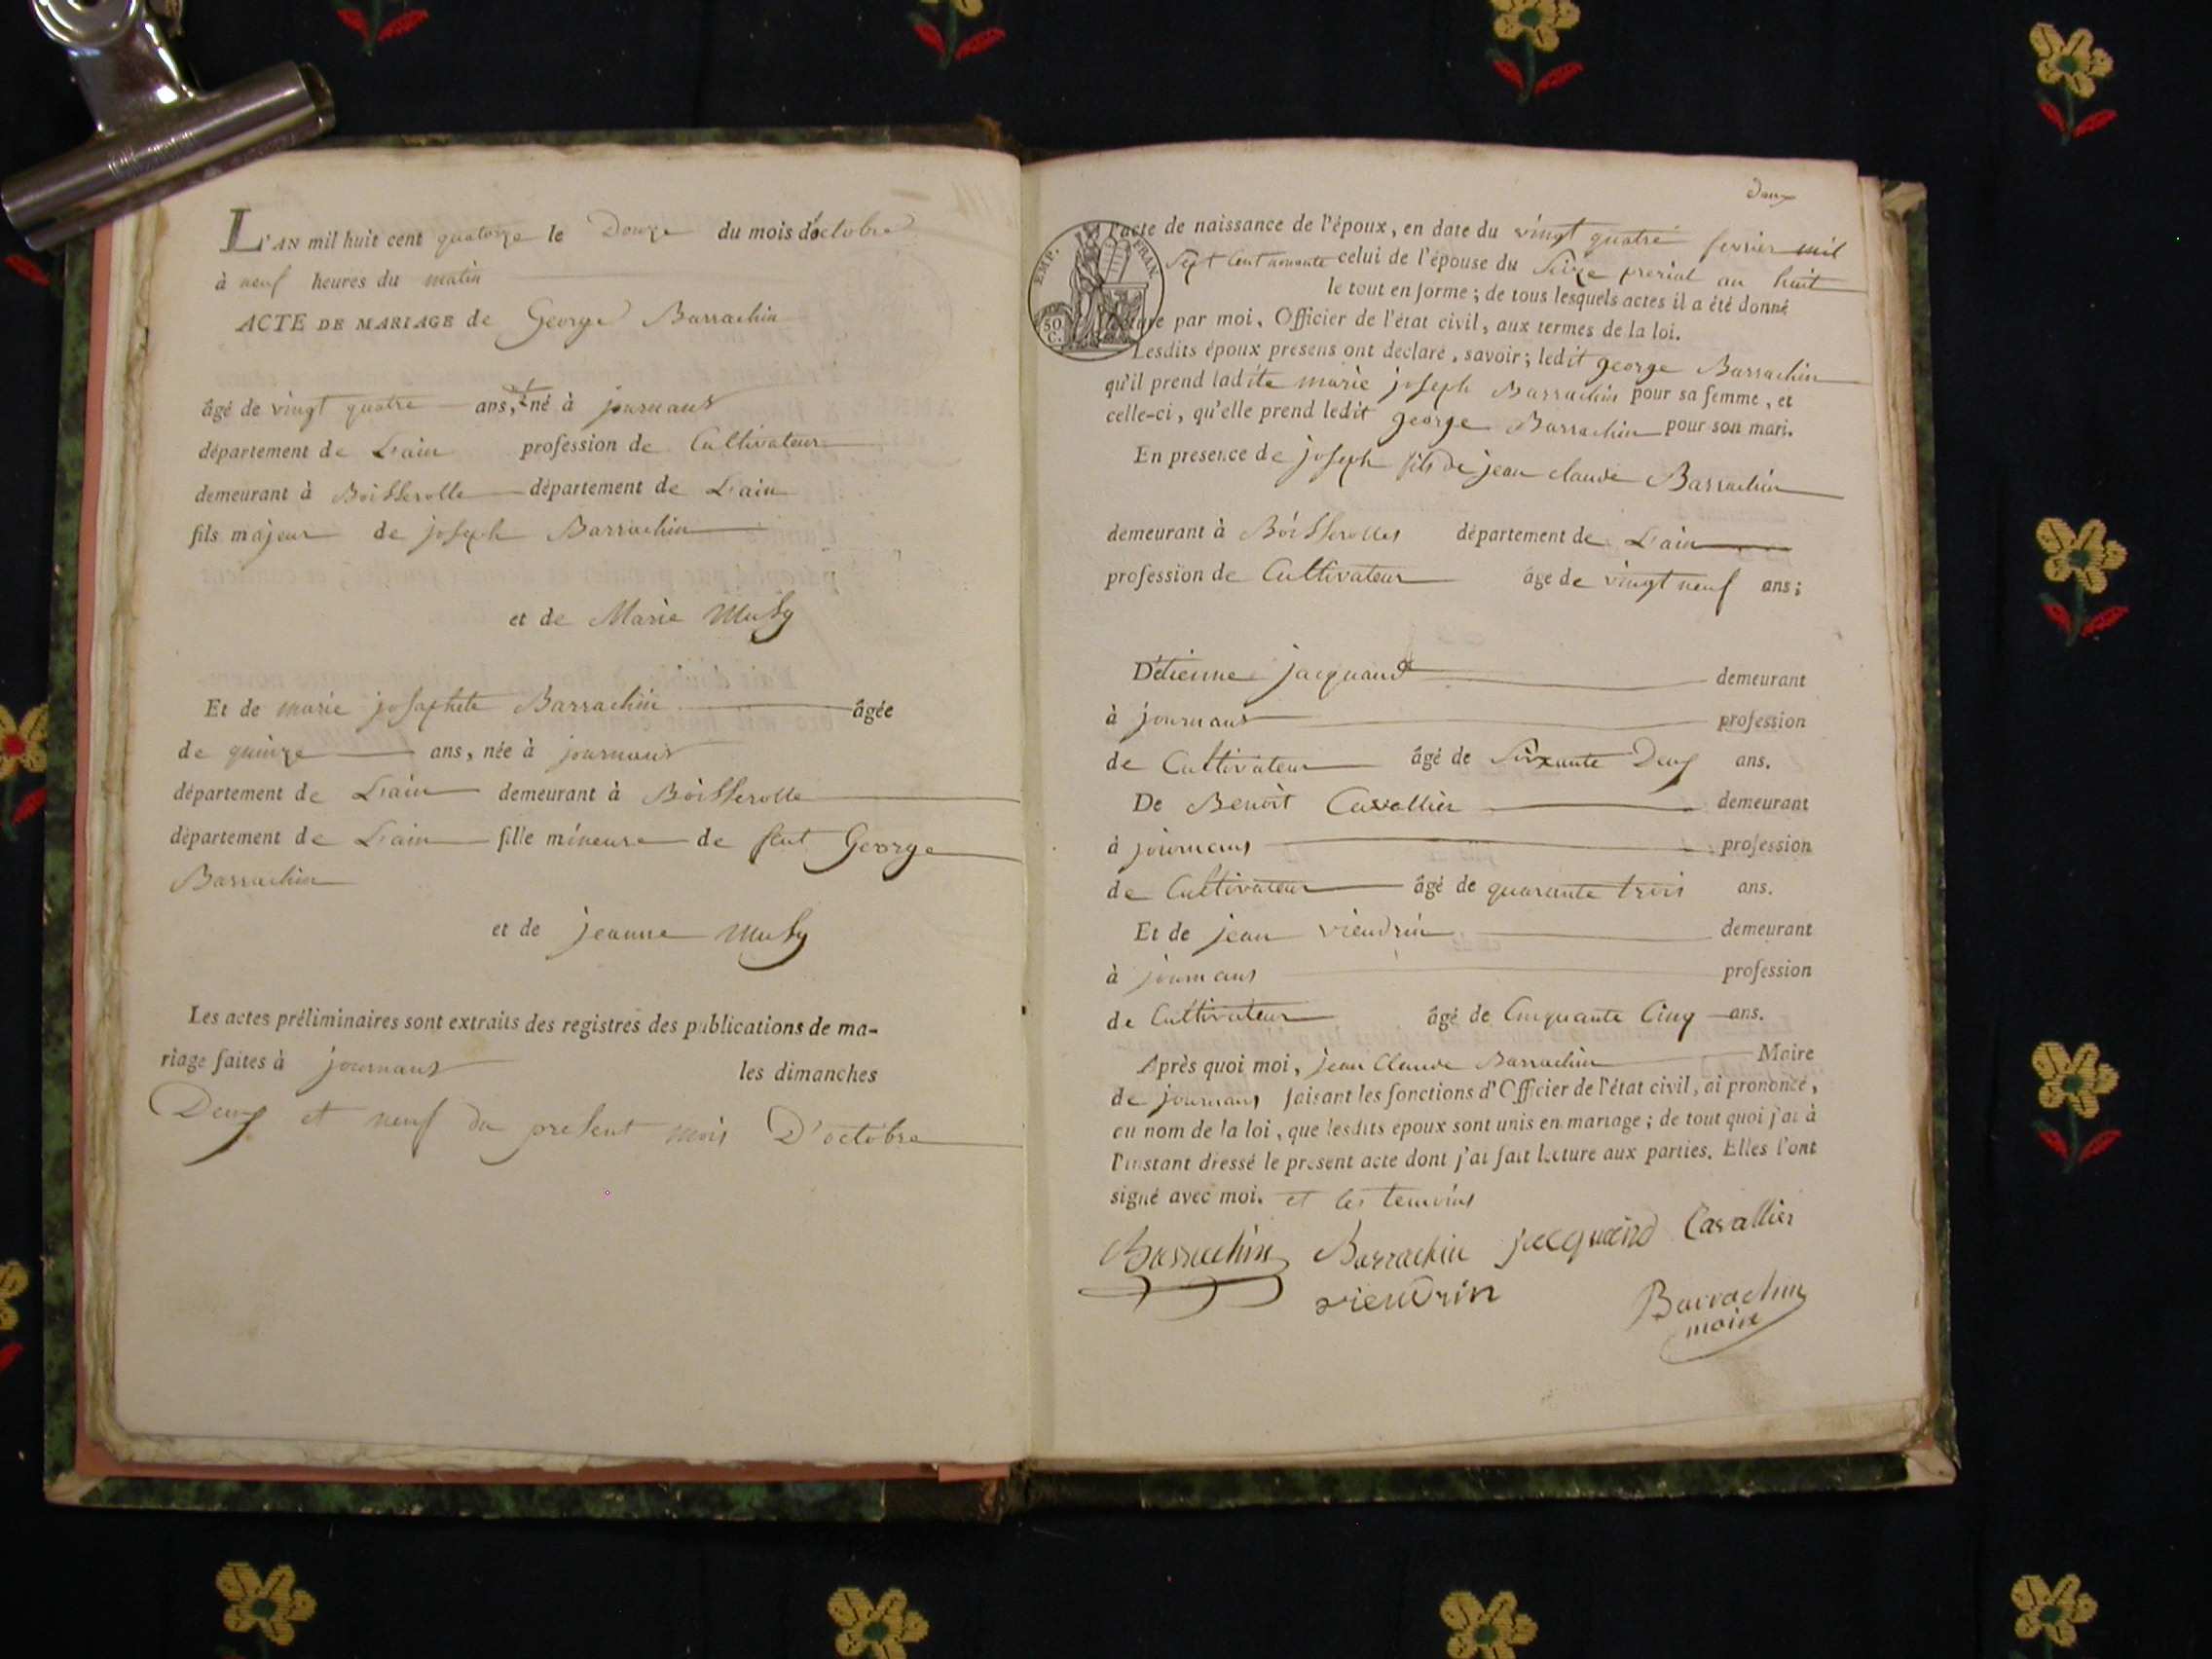 L'AN mil huit cent quatorze le Douze du mois d'octobre
à neuf heures du matin
ACTE DE MARIAGE de George Barrachin
âgé de vingt quatre ans, né à journans
département de L'ain profession de Cultivateur
demeurant à Boisserolle département de L'ain
fils majeur de joseph Barrachin
et de Marie Musy
Et de marie josephete Barrachin âgée
de quinze ans, née à journans
département de L'ain demeurant à Boisserolle
département de L'ain fille mineure de feut George
Barrachin
et de jeanne Musy
Les actes préliminaires sont extraits des registres des publications de ma-
riage faites à journans les dimanches
Deux et neuf du present mois D'octobre
Deux
l'acte de naissance de l'époux, en date du vingt quatre fevrier mil
EMP. FRAN.
Sept Cent nonante celui de l'épouse du Seize prerial an huit
le tout en forme; de tous lesquels actes il a été donné
50 C.
lecture par moi, Officier de l'état civil, aux termes de la loi.
Lesdits époux présens ont déclaré, savoir; ledit george Barrachin
qu'il prend ladite marie joseph Barrachin pour sa femme, et
celle-ci, qu'elle prend ledit george Barrachin pour son mari.
En présence de joseph fils de jean claude Barrachin
demeurant à Boisserolles département de L'ain
profession de Cultivateur âgé de vingt neuf ans;
D'étienne jacquand demeurant
à journans profession
de Cultivateur âgé de Soixante Deux ans.
De Benoit Cavallier demeurant
à journans profession
de Cultivateur âgé de quarante trois ans.
Et de jean viendrin demeurant
à journans profession
de Cultivateur âgé de Cinquante Cinq ans.
Après quoi moi, jean Claude Barrachin Maire
de journans faisant les fonctions d'Officier de l'état civil, ai prononcé,
au nom de la loi, que lesdits époux sont unis en mariage; de tout quoi j'ai à
l'instant dressé le présent acte dont j'ai fait lecture aux parties. Elles l'ont
signé avec moi. et les temoins
Barrachin Barrachin jacquand Cavallier
viendrin Barrachin
maire